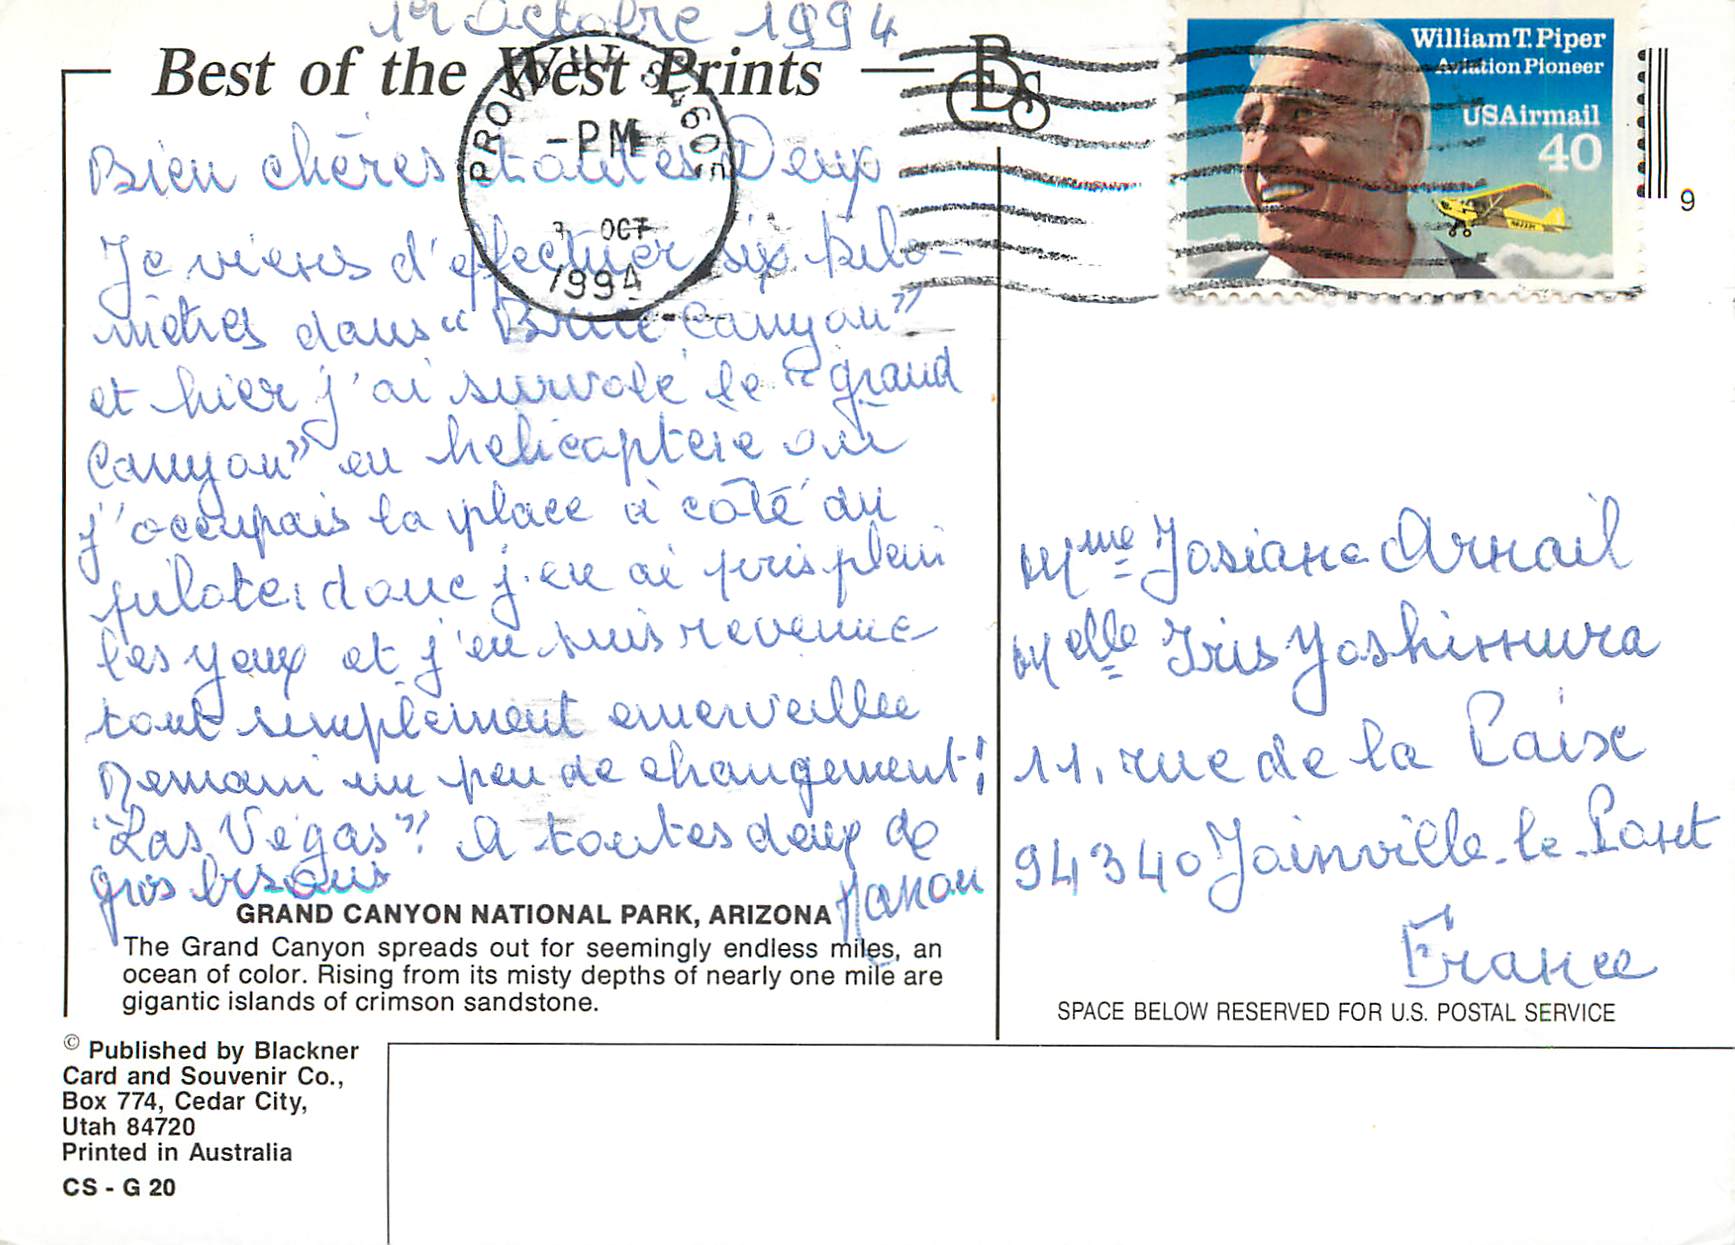 1er Octobre 1994
Best of the West Prints
PROVO, UT 84605
-PM
3 OCT
1994
William T. Piper
Aviation Pioneer
USAirmail
40
9
Bien chères toutes Deux
Je viens d'effectuer six kilo-
mètres dans "Brice Canyon"
et hier j'ai survolé le "grand
Canyon" en hélicoptère où
j'occupais la place à côté du
pilote, donc j'en ai pris plein
les yeux et j'en suis revenue
tout simplement emerveillée
Demain un peu de changement!
"Las Végas"! A toutes deux de
gros bisous
Manou
Mme Josiane Arnail
Melle Iris Yoshimura
11, rue de la Paix
94340 Joinville-le-Pont
France
GRAND CANYON NATIONAL PARK, ARIZONA
The Grand Canyon spreads out for seemingly endless miles, an
ocean of color. Rising from its misty depths of nearly one mile are
gigantic islands of crimson sandstone.
SPACE BELOW RESERVED FOR U.S. POSTAL SERVICE
© Published by Blackner
Card and Souvenir Co.,
Box 774, Cedar City,
Utah 84720
Printed in Australia
CS - G 20